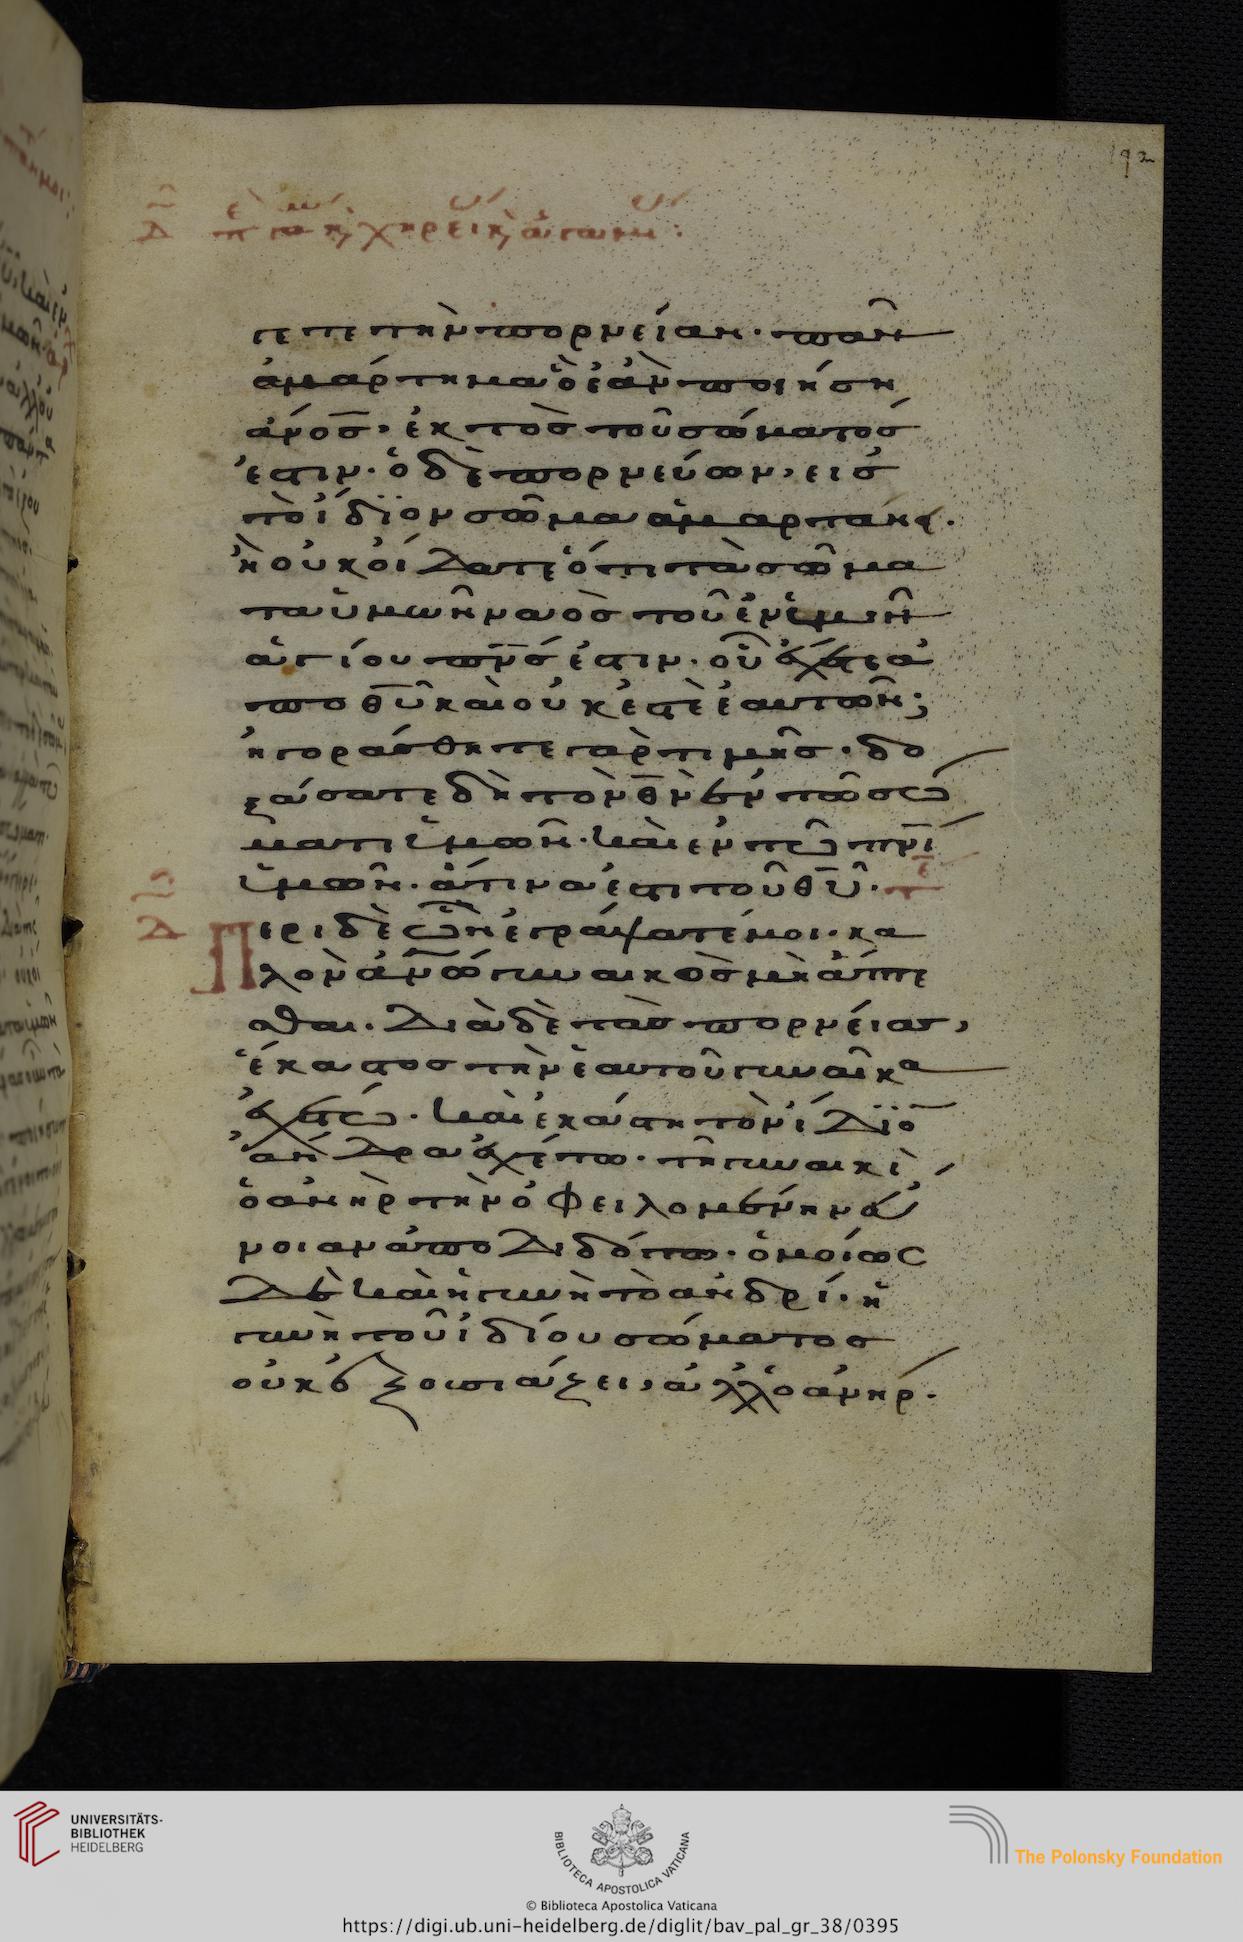 192
γετε τὴν πορνείαν· πᾶν
ἁμάρτημα ὃ ἐὰν ποιήση
ἄνος̅, ἐκτὸς τοῦ σώματός
ἐστιν· ὁ δὲ πορνεύων, εἰς
τὸ ἴδϊον σῶμα ἁμαρτάνει.
ἢ οὐκ οἴδατε ὅτι τὰ σῶμα
τα ὑμῶν ναὸς τοῦ ἐν ὑμῖν
ἁγίου πν̅ς ἐστιν· οὗ ἔχετε ἀ
πὸ θ̅υ καὶ οὐκ ἐστὲ ἑαυτῶν;
ἠγοράσθητε γὰρ τιμῆς· δο
ξάσατε δὴ τὸν θ̅ν ἐν τῶ σώ
ματι ὑμῶν· καὶ ἐν τῶ πν̅ι
ὑμῶν· ἅτινά ἐστι τοῦ θ̅υ.
Περὶ δὲ ὧν ἐγράψατέ μοι· κα
λὸν ἀν̅ω γυναικὸς μὴ ἅπτε
σθαι. Διὰ δὲ τὰς πορνείας,
ἕκαστος τὴν ἑαυτοῦ γυναῖκα
ἐχέτω· καὶ ἑκάστη τὸν ἴδϊο̅
ἄνδρα ἐχέτω· τῆ γυναικὶ
ὁ ἀνὴρ τὴν ὀφειλομένην εὔ
νοιαν ἀποδιδότω· ὁμοίως
δὲ καὶ ἡ γυνὴ τῶ ἀνδρί· ἡ
γυνὴ τοῦ ἰδίου σώματος
οὐκ ἐξουσιάζει, ἀλλ' ὁ ἀνήρ.
UNIVERSITÄTS-
BIBLIOTHEK
HEIDELBERG
BIBLIOTECA APOSTOLICA VATICANA
The Polonsky Foundation
© Biblioteca Apostolica Vaticana
https://digi.ub.uni-heidelberg.de/diglit/bav_pal_gr_38/0395